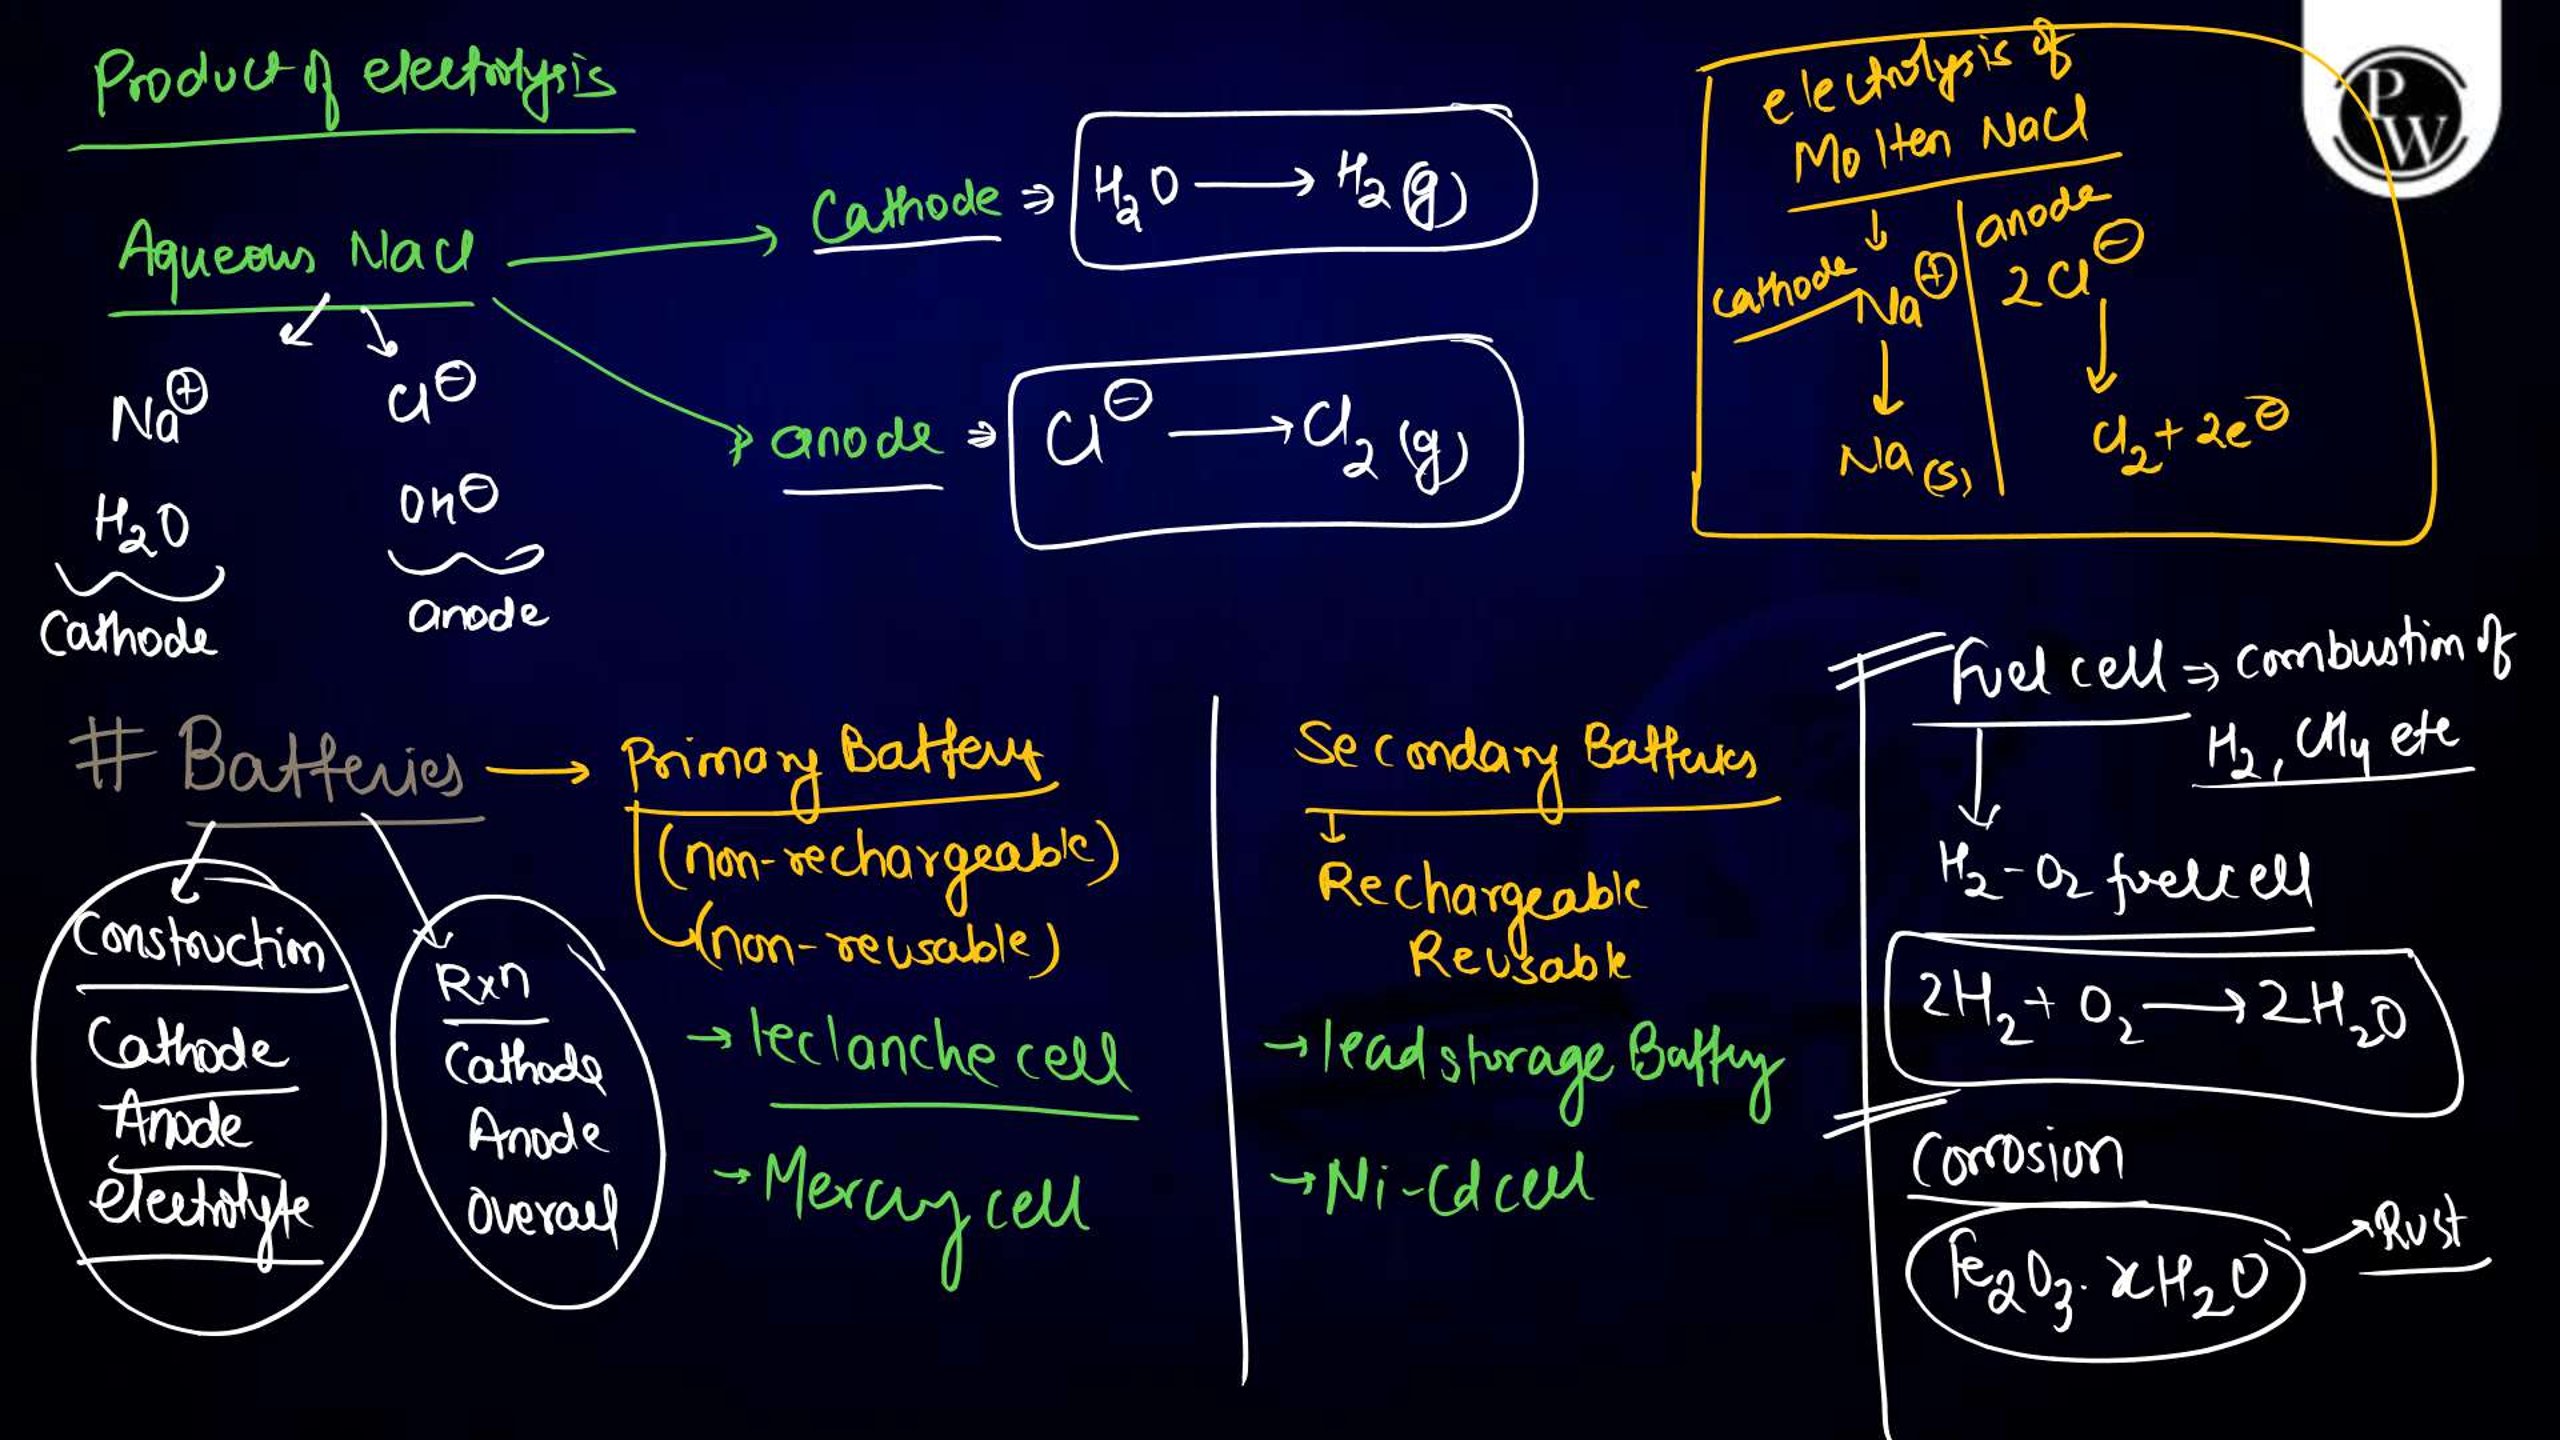 Product of electrolysis
Aqueous NaCl
Cathode ⇒ H₂O ⟶ H₂(g)
anode ⇒ Cl⊖ ⟶ Cl₂(g)
Na⊕ Cl⊖
H₂O OH⊖
Cathode anode
electrolysis of
Molten NaCl
cathode anode
Na⊕ 2Cl⊖
↓ ↓
Na(s) Cl₂+2e⊖
PW
# Batteries → Primary Battery
(non-rechargeable)
(non-reusable)
→ leclanche cell
→ Mercury cell
Construction
Cathode
Anode
electrolyte
Rxn
Cathode
Anode
Overall
Secondary Batteries
↓
Rechargeable
Reusable
→ lead storage Battery
→ Ni-Cd cell
Fuel cell ⇒ combustion of
H₂, CH₄ etc
H₂-O₂ fuel cell
2H₂ + O₂ ⟶ 2H₂O
Corrosion
Fe₂O₃.xH₂O → Rust